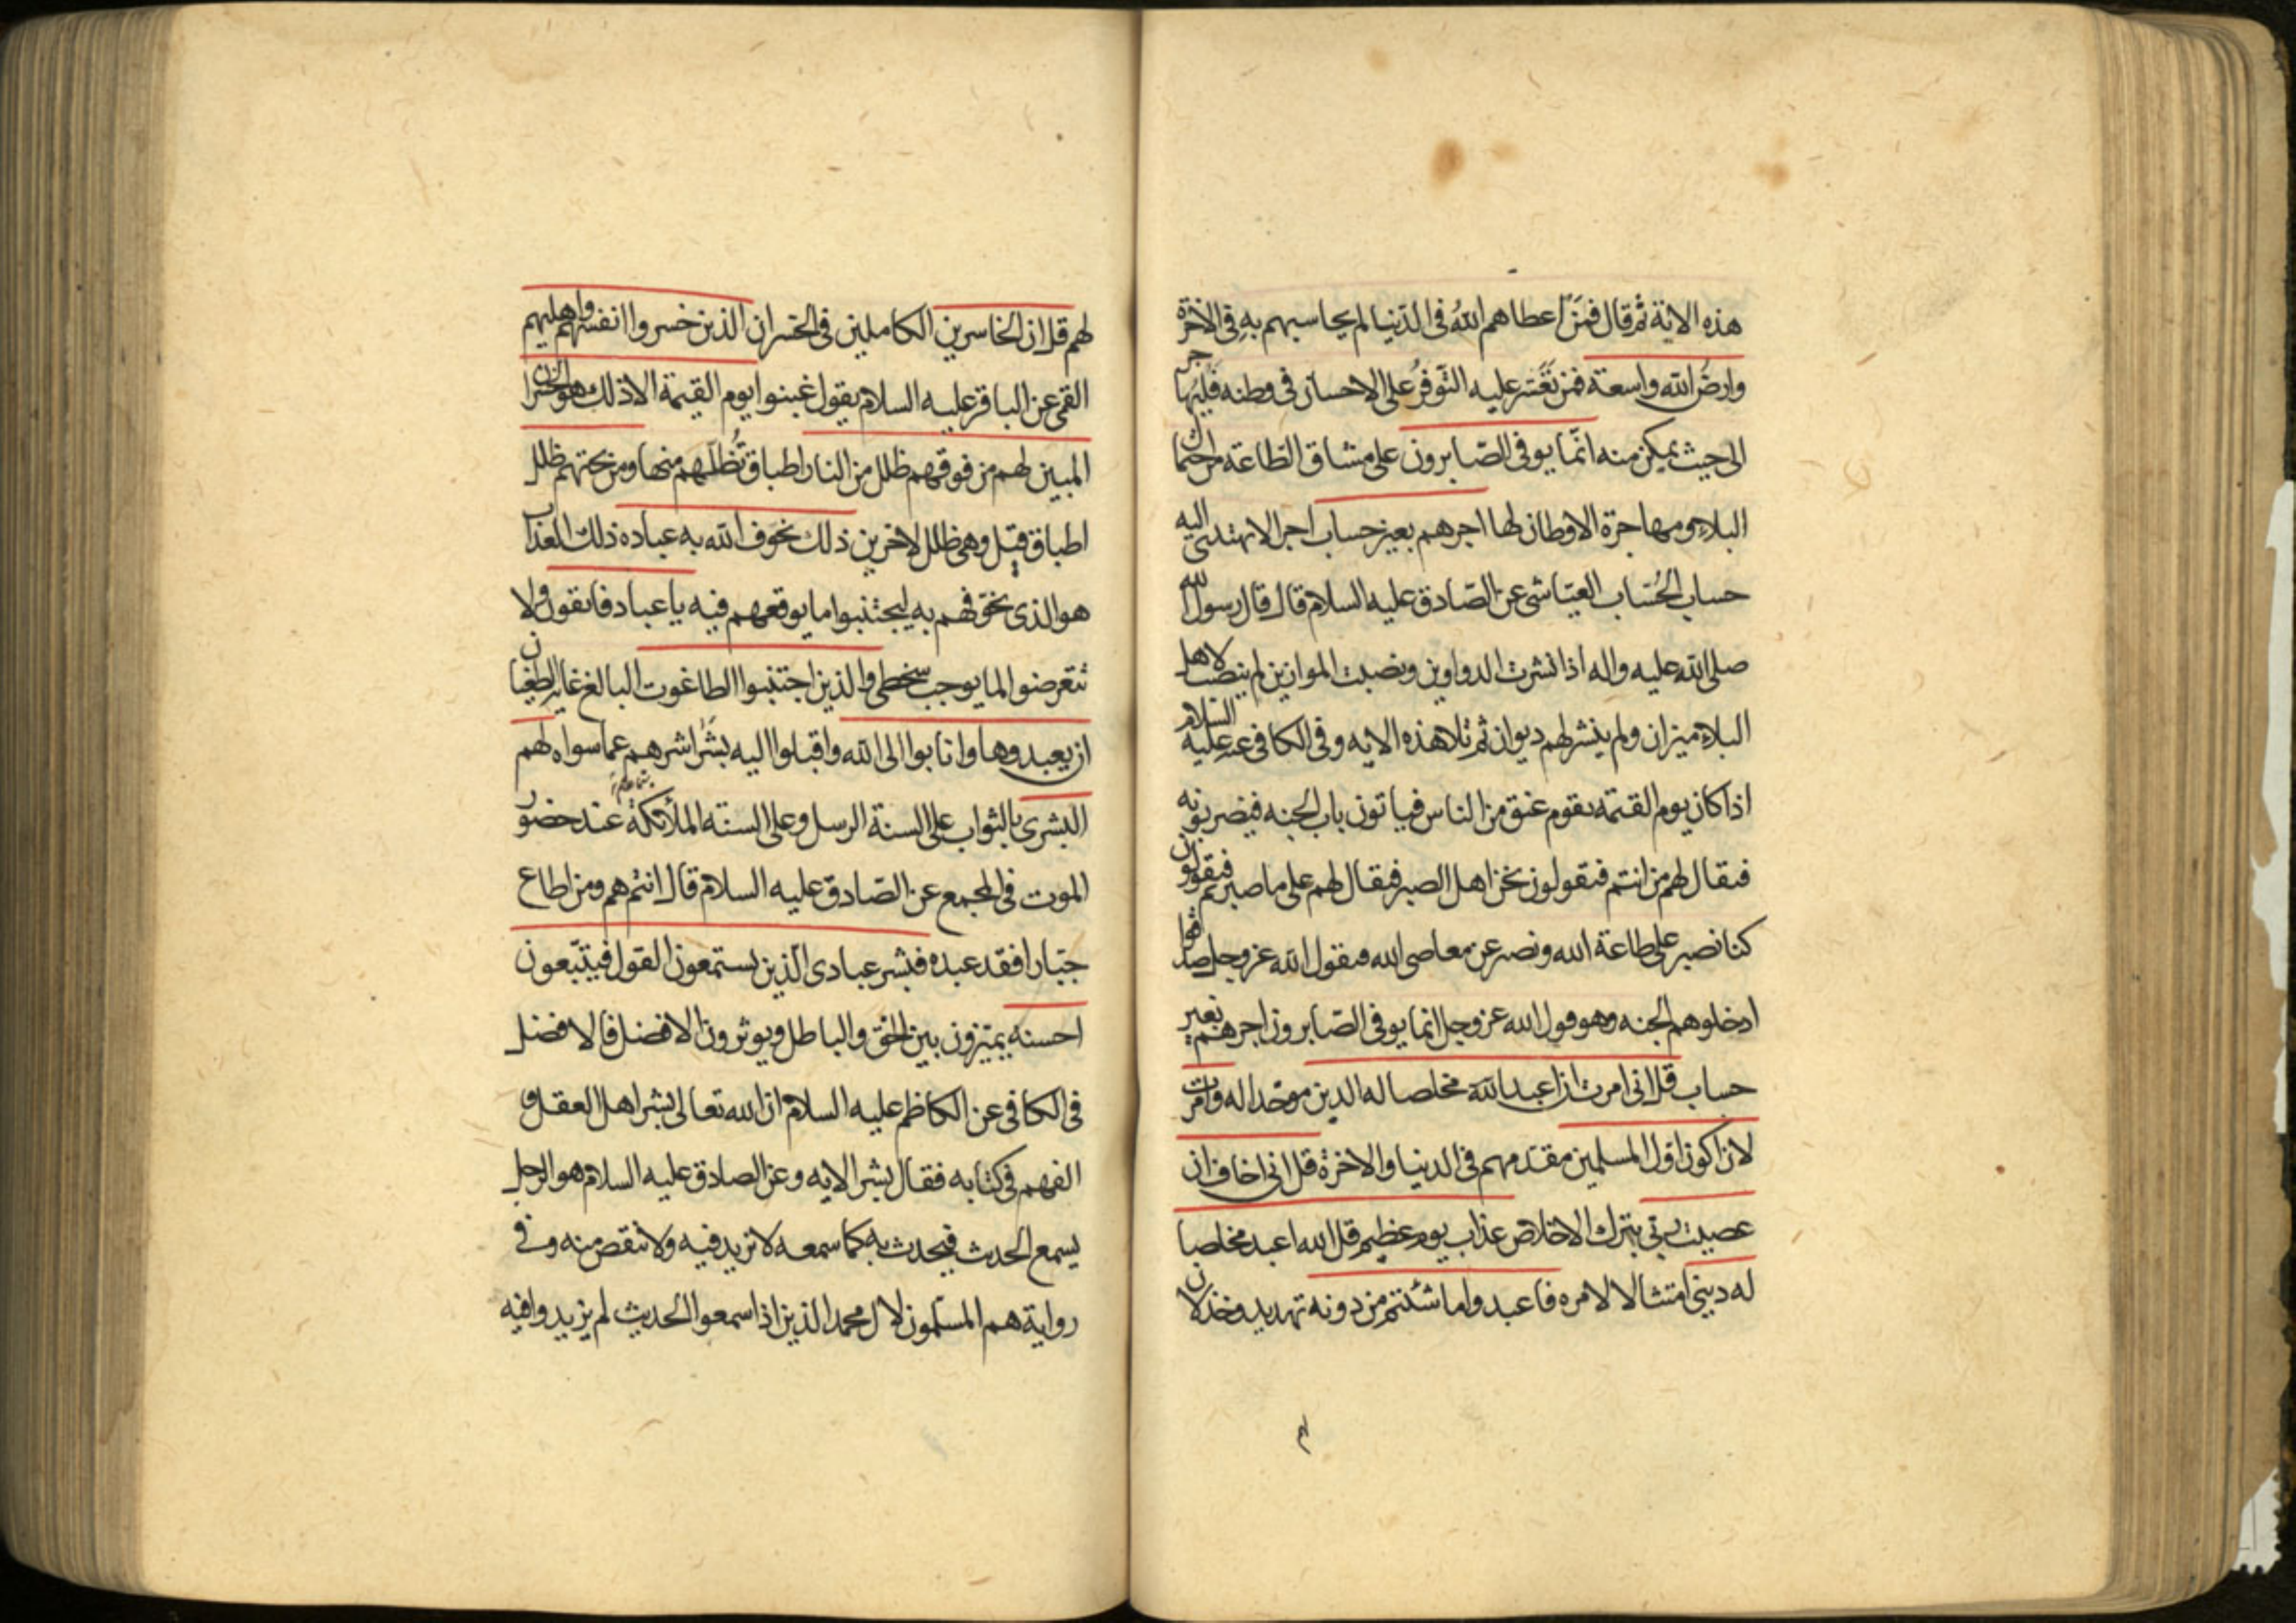 هذه الاية ثم قال فمن اعطاهم الله فى الدنيا لم يحاسبهم به فى الاخرة
وارض الله واسعة فمن تعسر عليه التوفر على الاحسان فى وطنه فليهاجر
الى حيث يمكن منه انما يوفى الصابرون على مشاق الطاعة من احتمال
البلاء ومهاجرة الاوطان لها اجرهم بغير حساب اجرا لا يهتدى اليه
حساب الحساب العياشى عن الصادق عليه السلام قال قال رسول الله
صلى الله عليه واله اذا نشرت الدواوين ونصبت الموازين لم ينصب لاهل
البلاء ميزان ولم ينشر لهم ديوان ثم تلا هذه الايه وفى الكافى عنه عليه السلام
اذا كان يوم القيمه يقوم عنق من الناس فياتون باب الجنه فيضربونه
فيقال لهم من انتم فيقولون نحن اهل الصبر فيقال لهم على ما صبرتم فيقولون
كنا نصبر على طاعة الله ونصبر عن معاصى الله فيقول الله عز وجل صدقوا
ادخلوهم الجنه وهو قول الله عز وجل انما يوفى الصابرون اجرهم بغير
حساب قل انى امرت ان اعبد الله مخلصا له الدين موحدا له وامرت
لان اكون اول المسلمين مقدمهم فى الدنيا والاخرة قل انى اخاف ان
عصيت ربى بترك الاخلاص عذاب يوم عظيم قل الله اعبد مخلصا
له دينى امتثالا لامره فاعبدوا ما شئتم من دونه تهديد وخذلان
لهم
لهم قل ان الخاسرين الكاملين فى الخسران الذين خسروا انفسهم واهليهم
القمى عن الباقر عليه السلام يقول غبنوا يوم القيمة الا ذلك هو الخسران
المبين لهم من فوقهم ظلل من النار اطباق تظلهم منها ومن تحتهم ظلل
اطباق قيل وهى ظلل لاخرين ذلك يخوف الله به عباده ذلك العذاب
هو الذى يخوفهم به ليجتنبوا ما يوقعهم فيه يا عباد فاتقون ولا
تتعرضوا لما يوجب سخطى والذين اجتنبوا الطاغوت البالغ غاية الطغيان
ان يعبدوها وانابوا الى الله واقبلوا اليه بشراشرهم عما سواه لهم
البشرى بالثواب على السنة الرسل وعلى السنته الملائكة عند حضور
الموت فى المجمع عن الصادق عليه السلام قال انتم هم ومن اطاع
جبارا فقد عبده فبشر عبادى الذين يستمعون القول فيتبعون
احسنه يميزون بين الحق والباطل ويوثرون الافضل فالافضل
فى الكافى عن الكاظم عليه السلام ان الله تعالى بشر اهل العقل و
الفهم فى كتابه فقال بشر الايه وعن الصادق عليه السلام هو الرجل
يسمع الحدث فيحدث به كما سمعه لا تزيد فيه ولا تنقص منه وفى
رواية هم المسلمون لال محمد الذين اذا سمعوا الحديث لم يزيدوا فيه